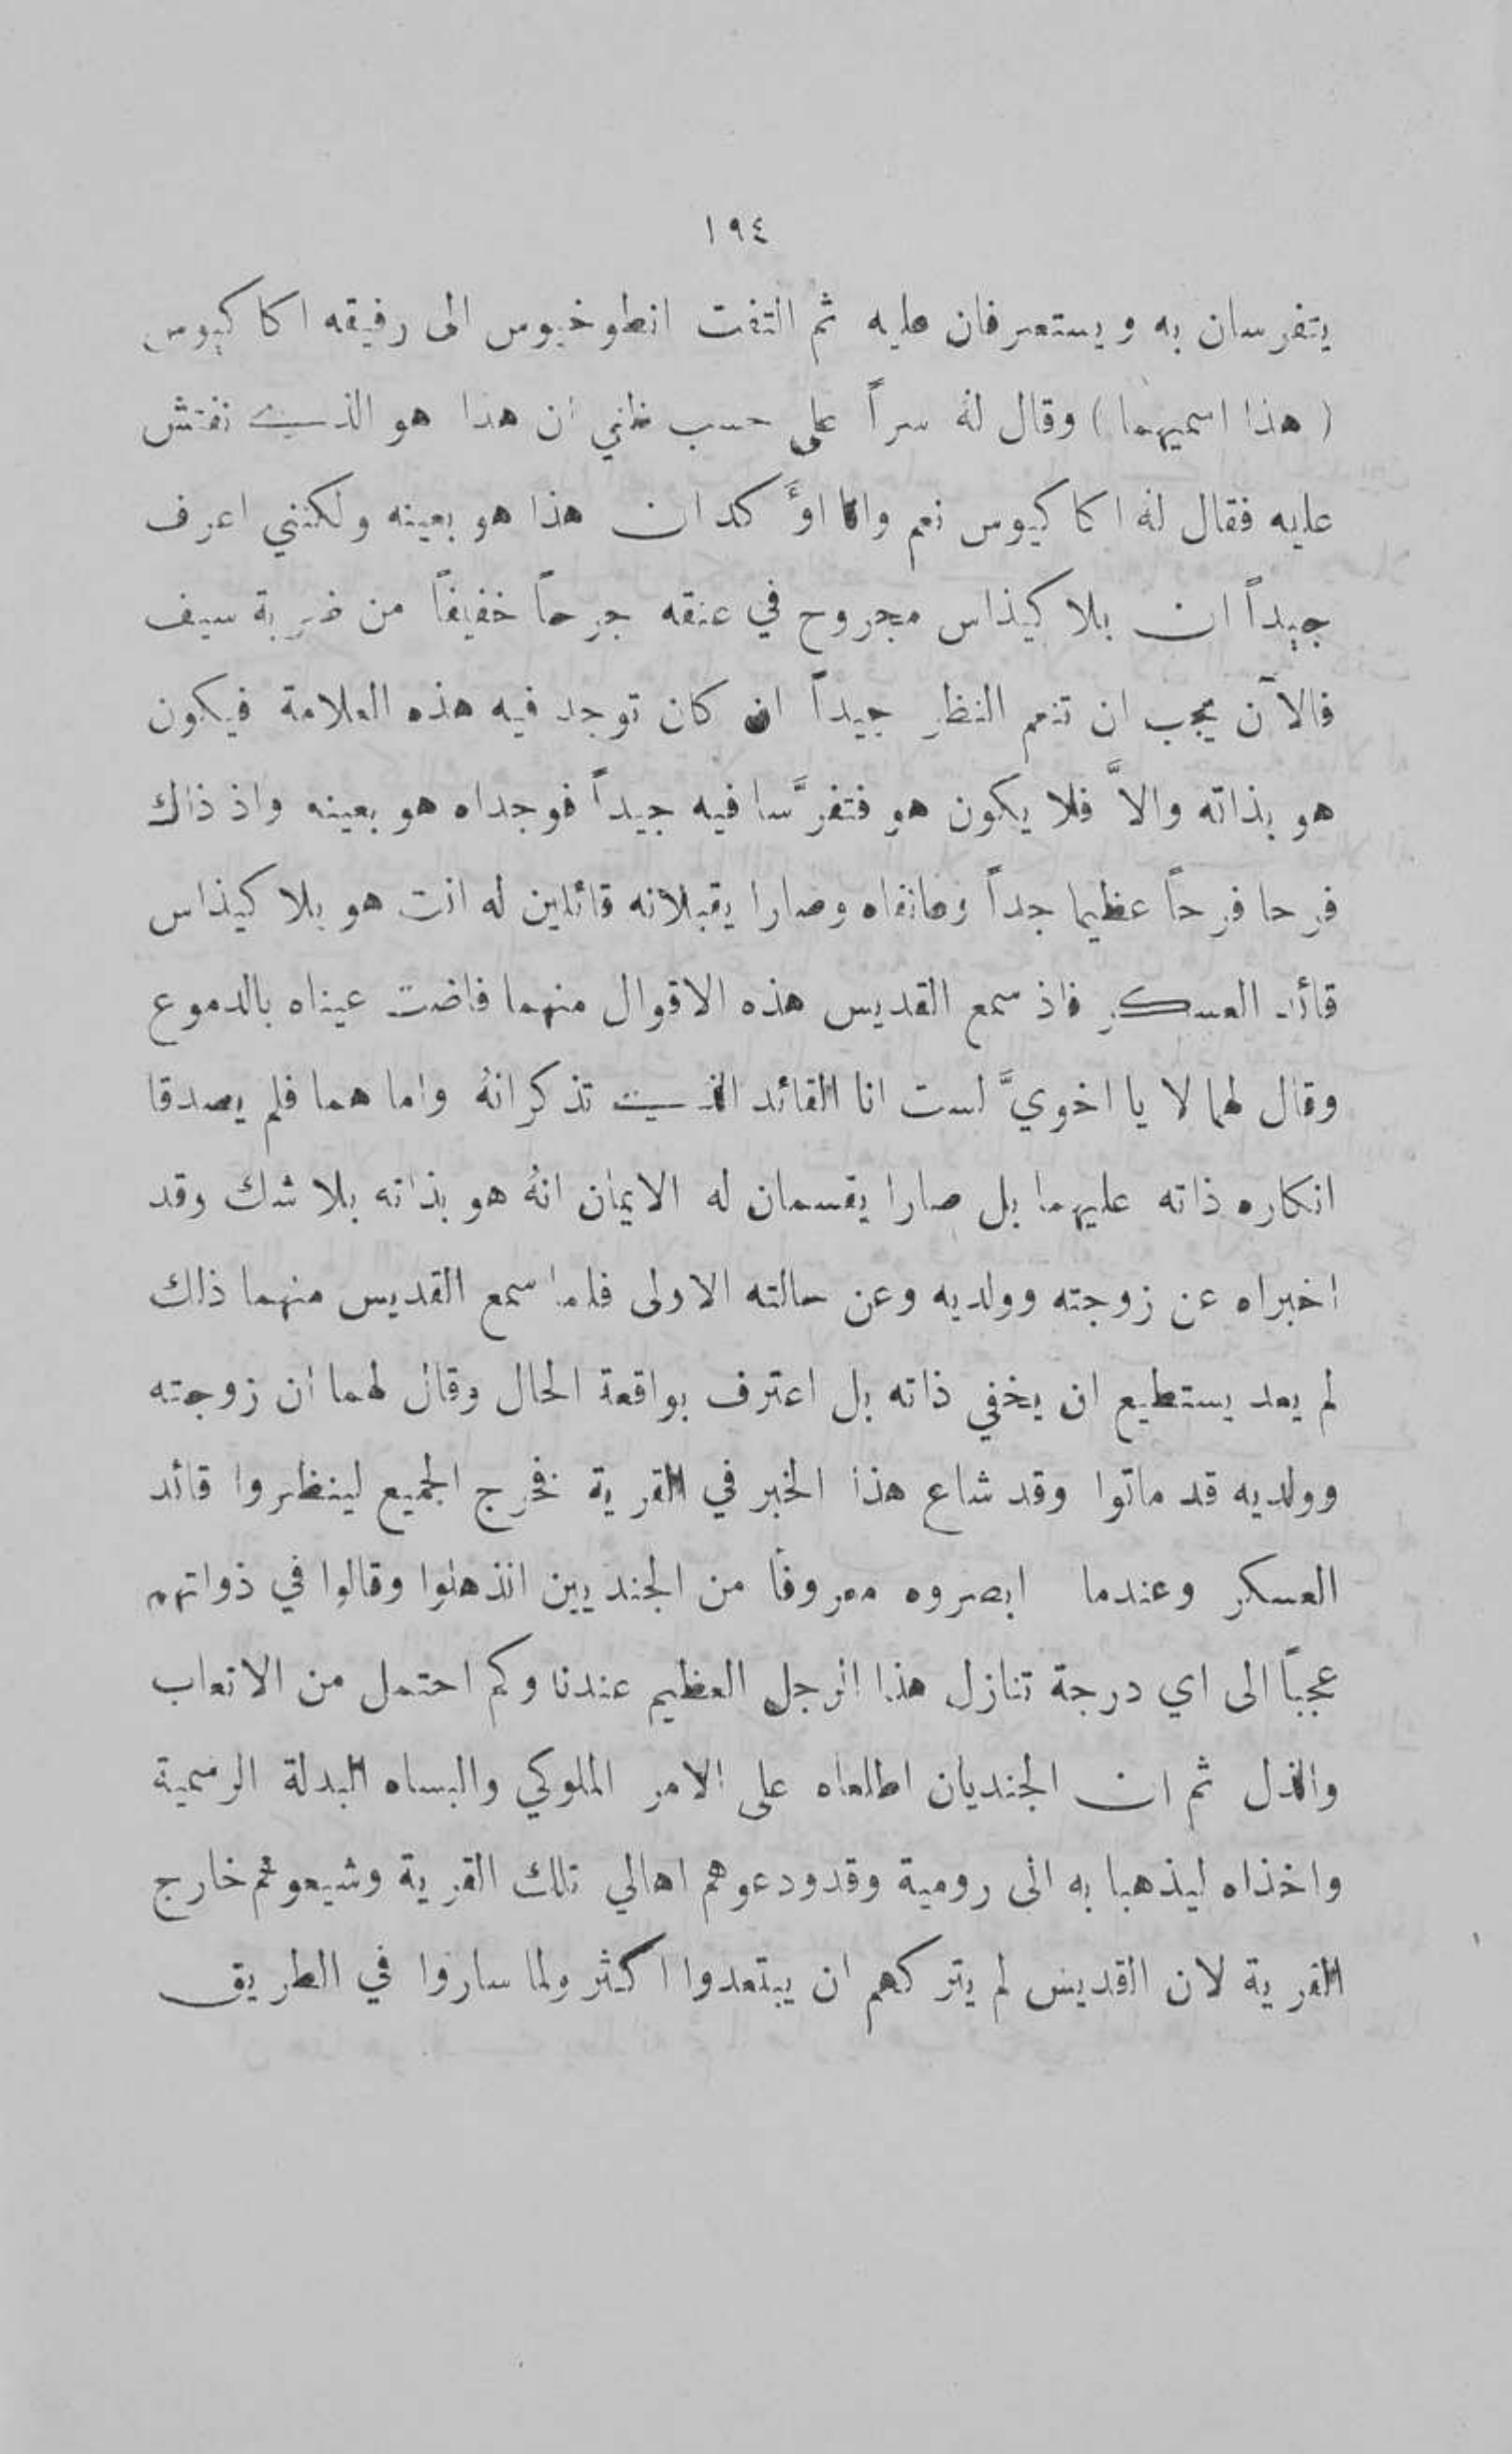 ١٩٤
يتفرسان به ويستعرفان عليه ثم التفت انطوخيوس الى رفيقه اكاكيوس
( هذا اسميهما ) وقال لهُ سراً على حسب ظني ان هذا هو الذي نفتش
عليه فقال لهُ اكاكيوس نعم وانا اوَّكد ان هذا هو بعينه ولكنني اعرف
جيداً ان بلاكيذاس مجروح في عنقه جرحاً خفيفاً من ضربة سيف
فالآن يجب ان تنعم النظر جيداً ان كان توجد فيه هذه العلامة فيكون
هو بذاته والاَّ فلا يكون هو فتفرَّسا فيه جيداً فوجداه هو بعينه واذ ذاك
فرحا فرحاً عظيما جداً وعانقاه وصارا يقبلانه قائلين له انت هو بلاكيذاس
قائد العسكر فاذ سمع القديس هذه الاقوال منهما فاضت عيناه بالدموع
وقال لهما لا يا اخويَّ لست انا القائد الذي تذكرانهُ واما هما فلم يصدقا
انكاره ذاته عليهما بل صارا يقسمان له الايمان انهُ هو بذاته بلا شك وقد
اخبراه عن زوجته وولديه وعن حالته الاولى فلما سمع القديس منهما ذلك
لم يعد يستطيع ان يخفي ذاته بل اعترف بواقعة الحال وقال لهما ان زوجته
وولديه قد ماتوا وقد شاع هذا الخبر في القرية فخرج الجميع لينظروا قائد
العسكر وعندما ابصروه معروفاً من الجنديين انذهلوا وقالوا في ذواتهم
عجباً الى اي درجة تنازل هذا الرجل العظيم عندنا وكم احتمل من الاتعاب
والذل ثم ان الجنديان اطلعاه على الامر الملوكي والبساه البدلة الرسمية
واخذاه ليذهبا به الى رومية وقد ودعوهم اهالي تلك القرية وشيعوهم خارج
القرية لان القديس لم يتركهم ان يبتعدوا اكثر ولما ساروا في الطريق